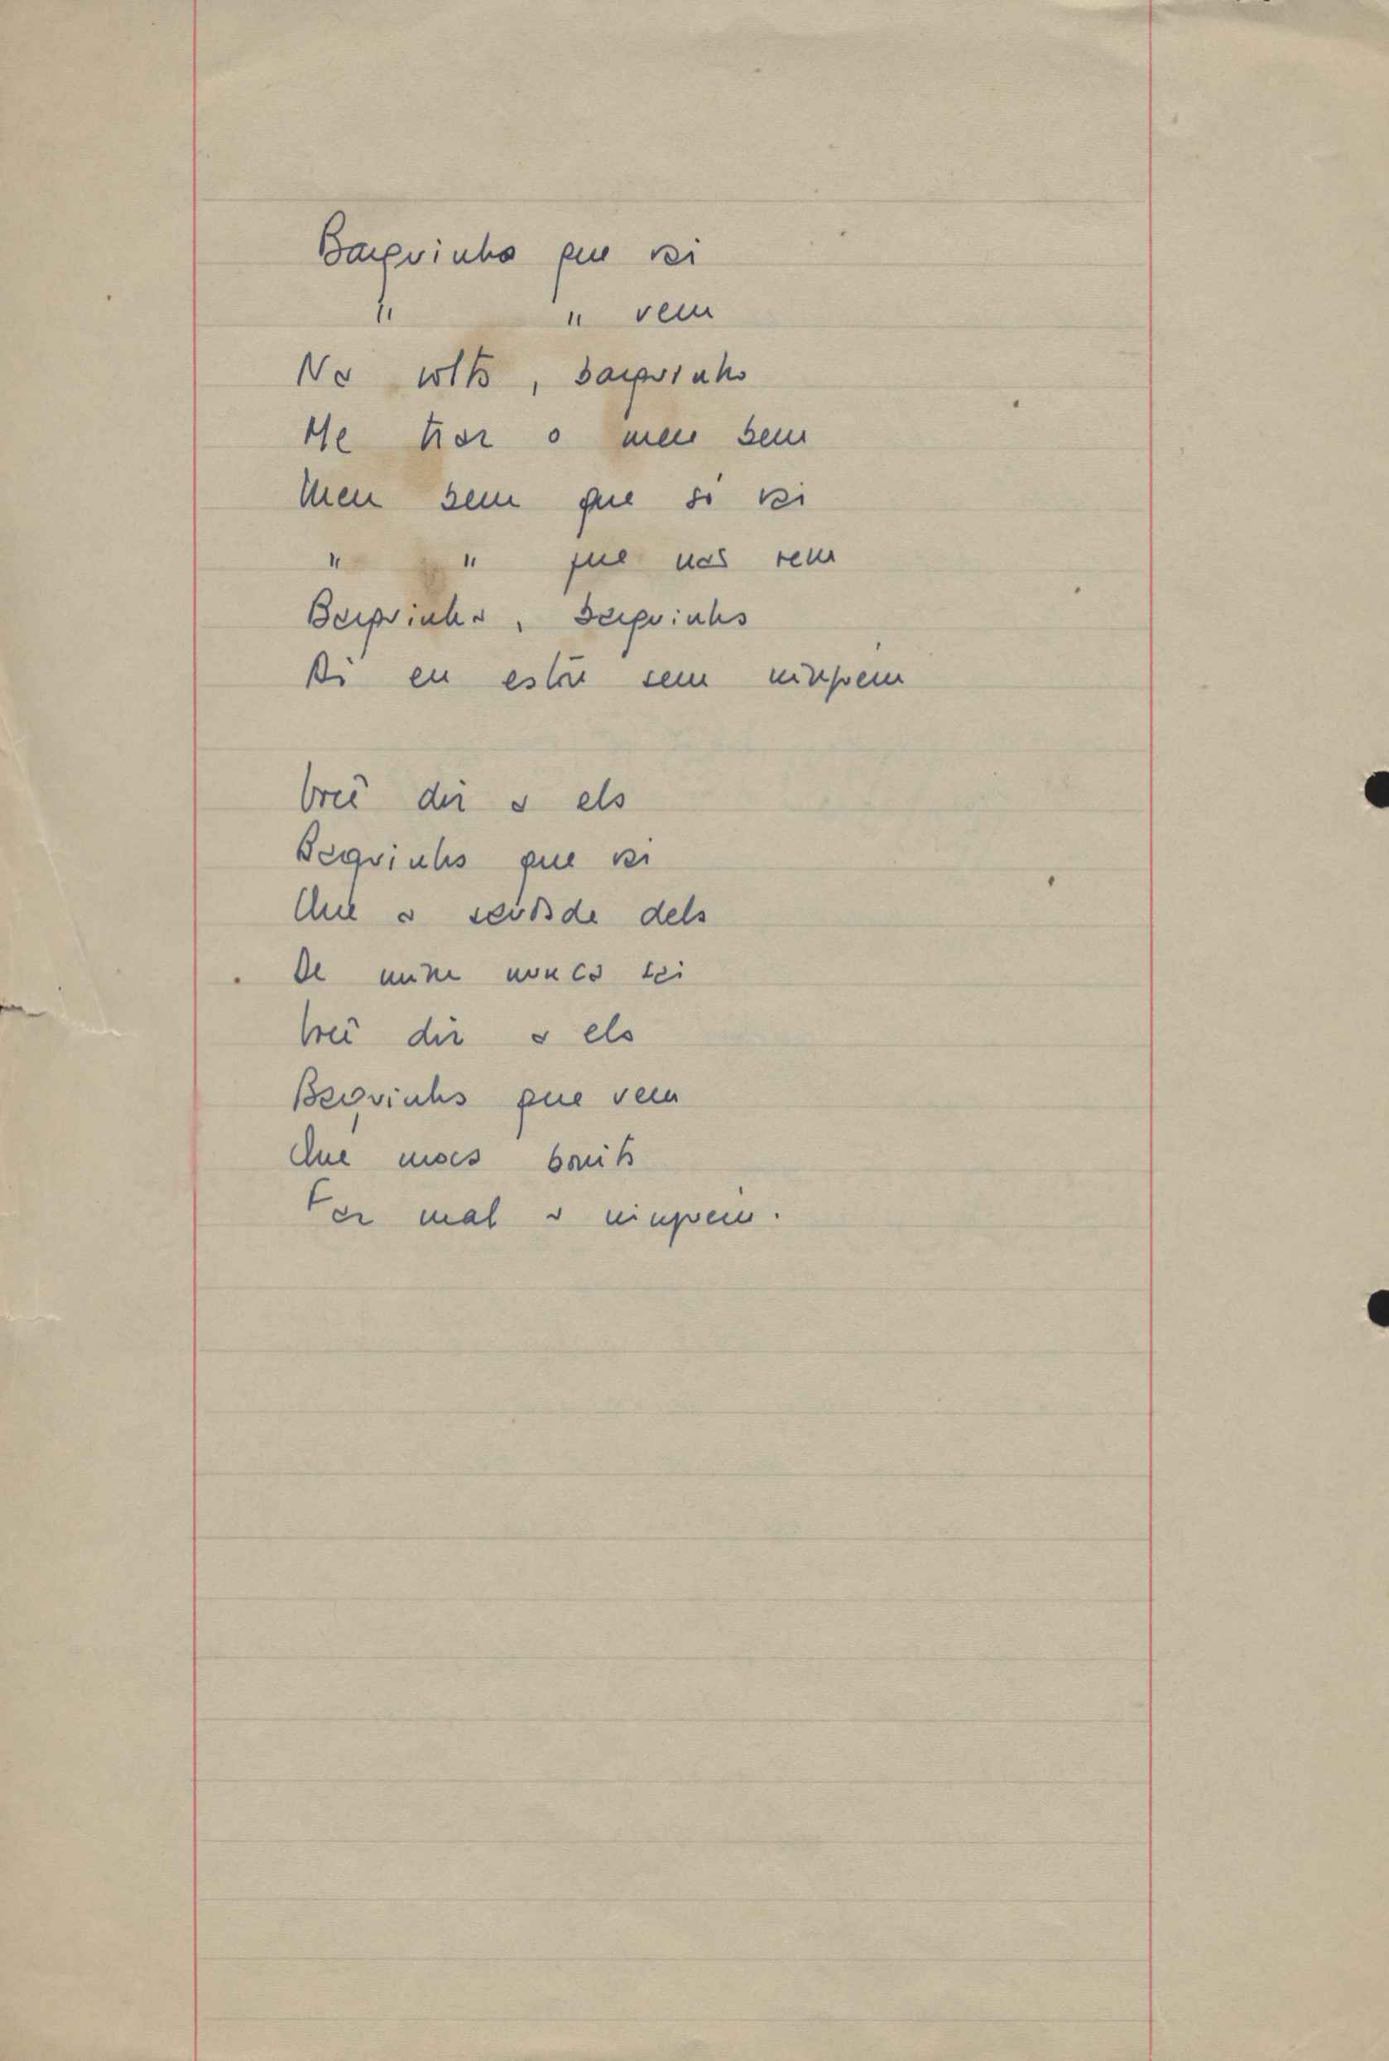 Barquinho que vai
" " vem
Na volta, barquinho
Me traz o meu bem
Meu bem que só vai
" " que não vem
Barquinho, barquinho
Ai eu estou sem ninguém
Vree dir a ela
Barquinho que vai
Que a saudade dela
De mim nunca sai
Vree dir a ela
Barquinho que vem
Que moça bonita
Faz mal a ninguém.